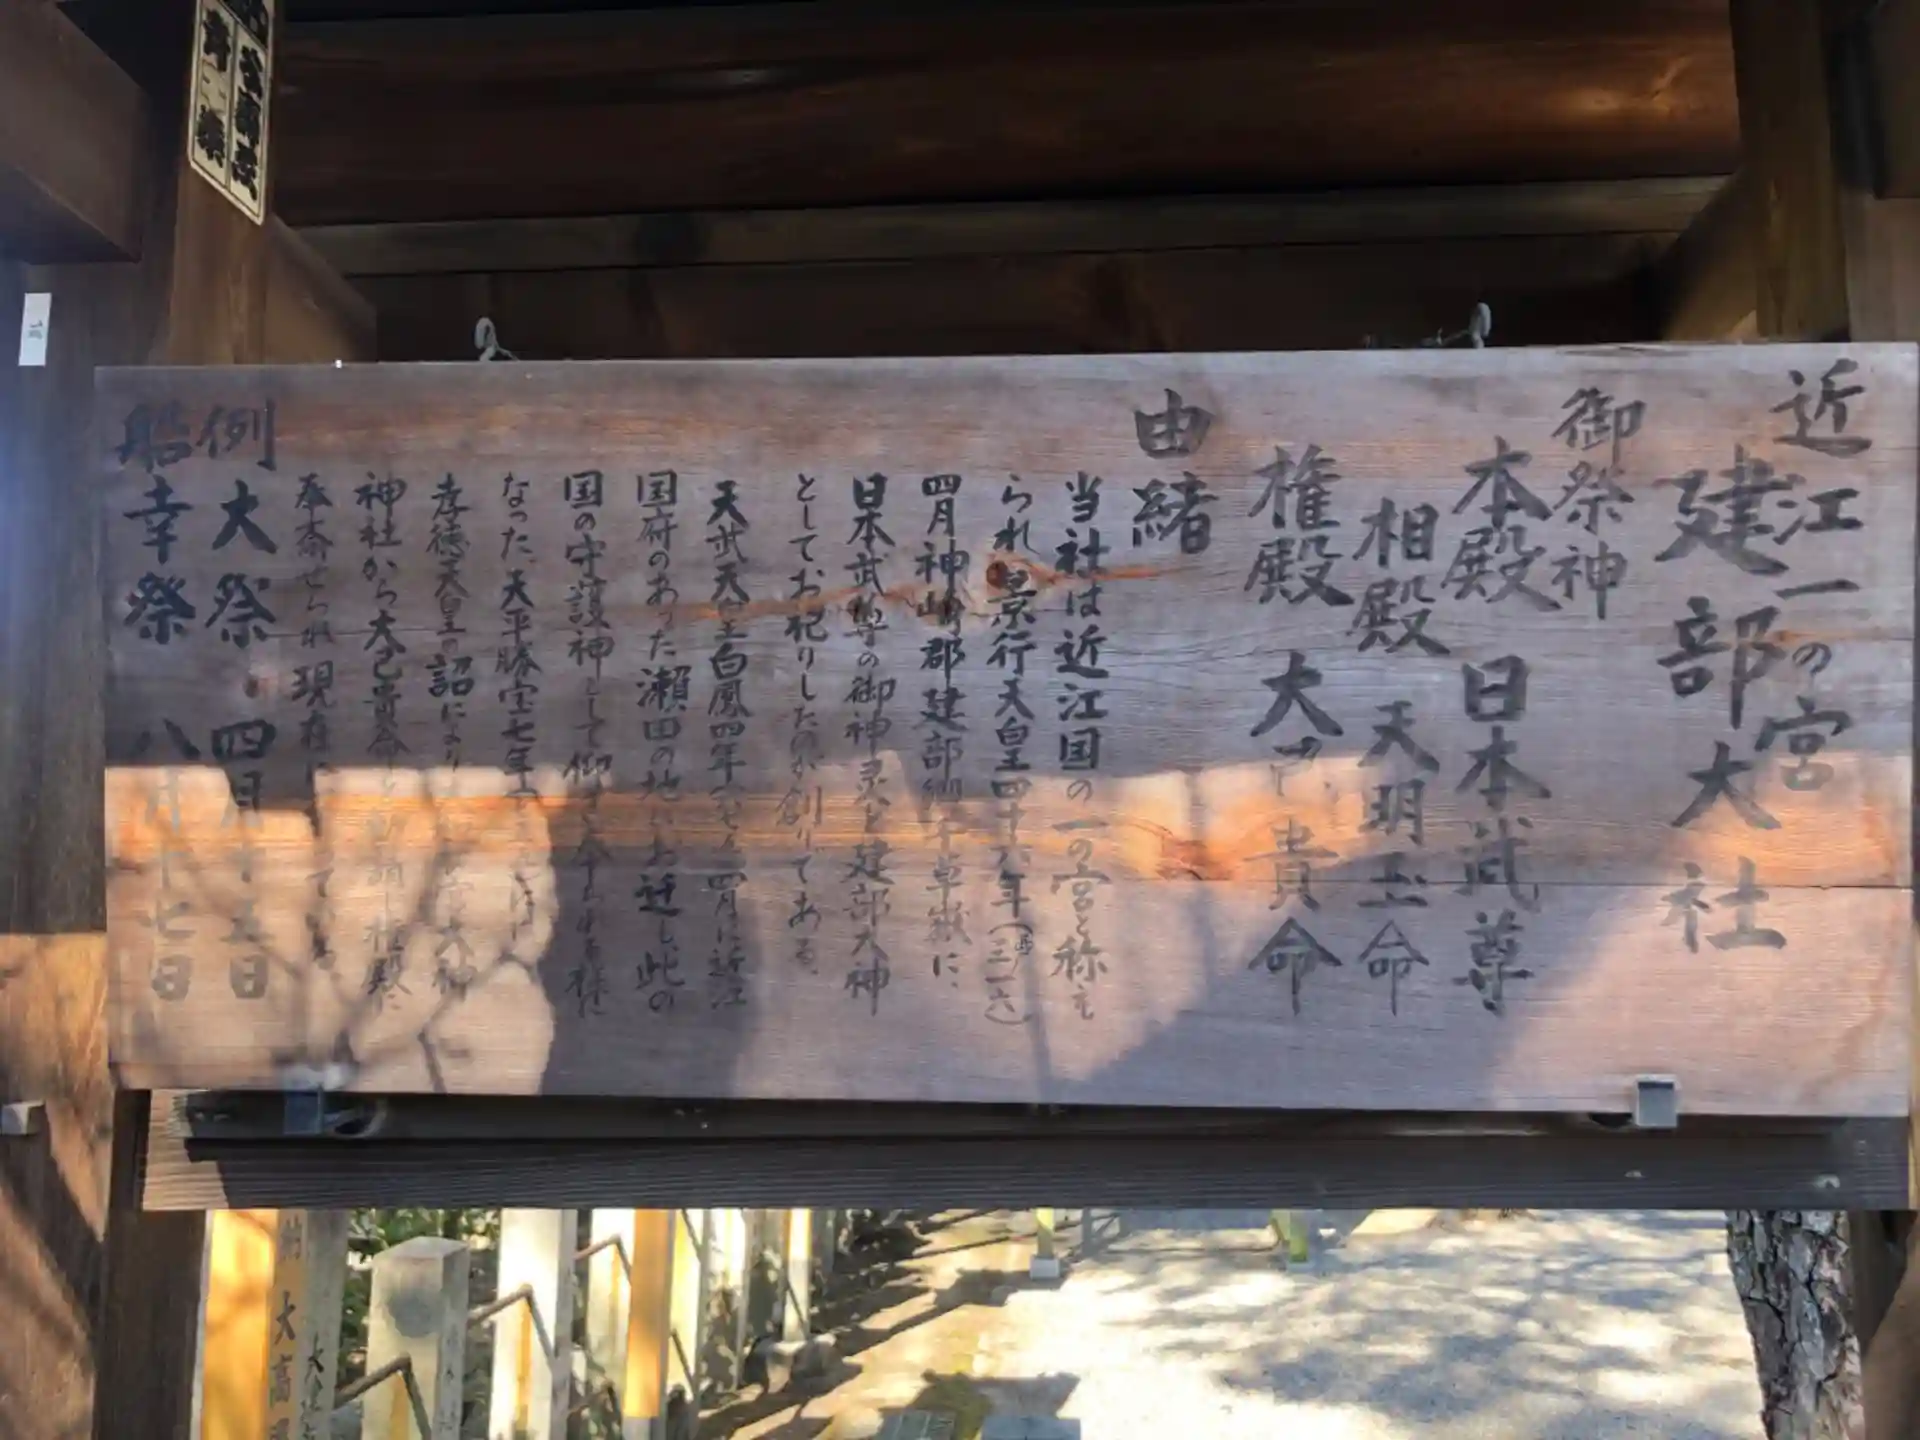 近江一の宮
建部大社
御祭神
本殿 日本武尊
相殿 天明玉命
権殿 大己貴命
由緒
当社は近江国の一の宮と称え
られ景行天皇四十六年(西三一六)
四月神崎郡建部郷千草嶽に、
日本武尊の御神灵を建部大神
としてお祀りしたのが創りである、
天武天皇白鳳四年 四月に近江
国府のあった瀬田の地にお迁し、此の
国の守護神として
なった、天平勝宝七年
孝徳天皇の詔により 大神
神社から大己貴命を 権殿に
奉斎せられ現在に
例大祭・四月十五日
船幸祭 八月十七日
大高